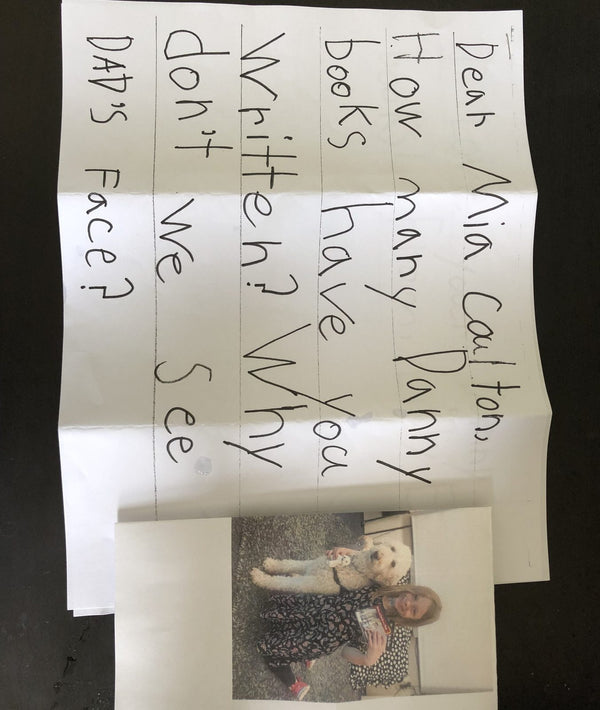 Dear Mia Coulton,
How many Danny
books have you
Written? Why
don't we See
DAD'S Face?